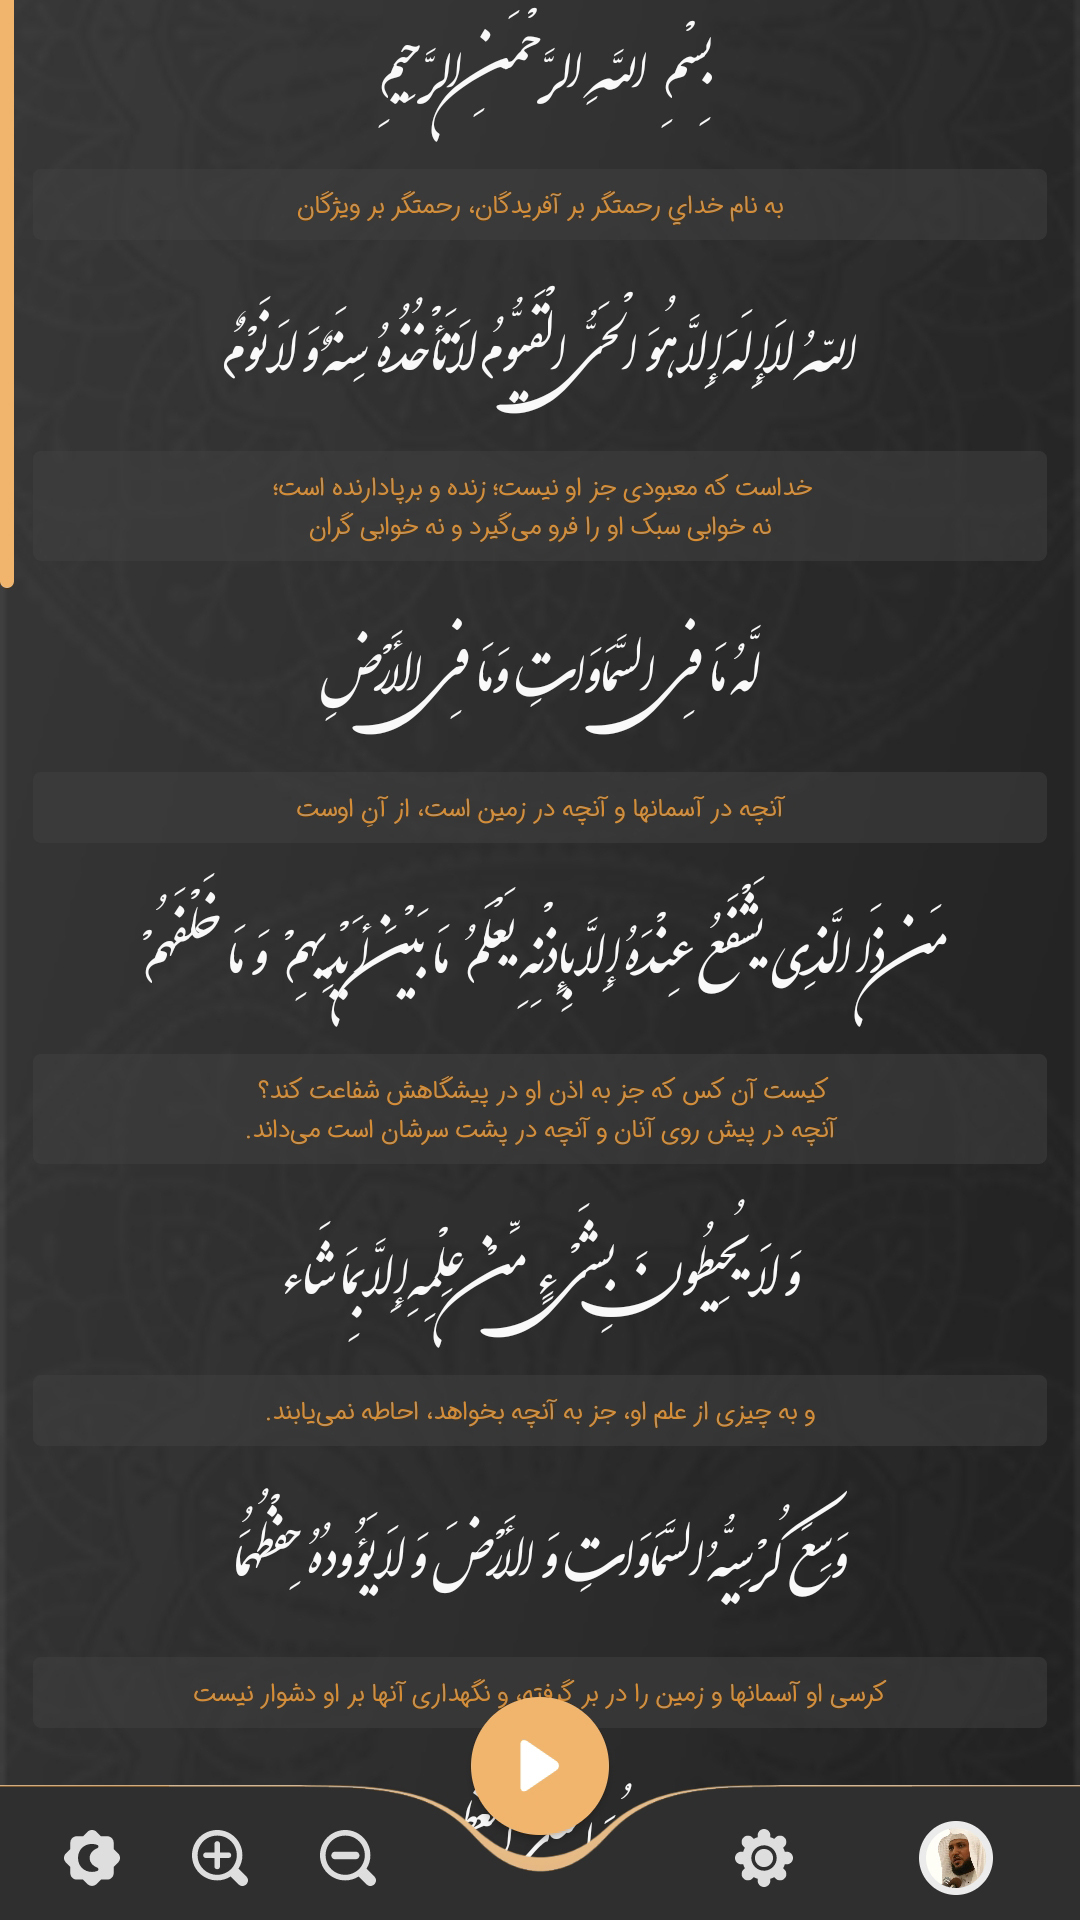 بِسْمِ اللَّهِ الرَّحْمَنِ الرَّحِيمِ
به نام خداي رحمتگر بر آفریدگان، رحمتگر بر ویژگان
اللّهُ لاَ إِلَهَ إِلاَّ هُوَ الْحَيُّ الْقَيُّومُ لاَ تَأْخُذُهُ سِنَةٌ وَ لاَ نَوْمٌ
خداست که معبودی جز او نیست؛ زنده و برپادارنده است؛
نه خوابی سبک او را فرو می‌گیرد و نه خوابی گران
لَّهُ مَا فِي السَّمَاوَاتِ وَمَا فِي الأَرْضِ
آنچه در آسمانها و آنچه در زمین است، از آنِ اوست
مَن ذَا الَّذِي يَشْفَعُ عِنْدَهُ إِلاَّ بِإِذْنِهِ يَعْلَمُ مَا بَيْنَ أَيْدِيهِمْ وَ مَا خَلْفَهُمْ
کیست آن کس که جز به اذن او در پیشگاهش شفاعت کند؟
آنچه در پیش روی آنان و آنچه در پشت سرشان است می‌داند.
وَ لاَ يُحِيطُونَ بِشَيْءٍ مِّنْ عِلْمِهِ إِلاَّ بِمَا شَاء
و به چیزی از علم او، جز به آنچه بخواهد، احاطه نمی‌یابند.
وَسِعَ كُرْسِيُّهُ السَّمَاوَاتِ وَ الأَرْضَ وَ لاَ يَؤُودُهُ حِفْظُهُمَا
کرسی او آسمانها و زمین را در بر گرفته، و نگهداری آنها بر او دشوار نیست